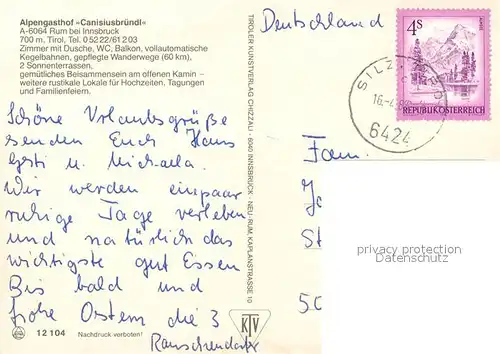 Alpengasthof »Canisiusbründl«
A-6064 Rum bei Innsbruck
700 m, Tirol, Tel. 0 52 22/61 2 03
Zimmer mit Dusche, WC, Balkon, vollautomatische
Kegelbahnen, gepflegte Wanderwege (60 km),
2 Sonnenterrassen,
gemütliches Beisammensein am offenen Kamin –
weitere rustikale Lokale für Hochzeiten, Tagungen
und Familienfeiern.
Schöne Urlaubsgrüße
senden Euch Hans
Gesti u. Michaela.
Wir werden einpaar
ruhige Tage verleben
und natürlich das
wichtigste gut Essen
Bis bald und
frohe Ostern die 3
Rauschendorfer
12 104
Nachdruck verboten!
TIROLER KUNSTVERLAG CHIZZALI · 6040 INNSBRUCK - NEU - RUM, KAPLANSTRASSE 10
KTV
Deutschland
4 S
REPUBLIK ÖSTERREICH
SILZ
16.-4.
6424
Fam.
privacy protection
VM Images